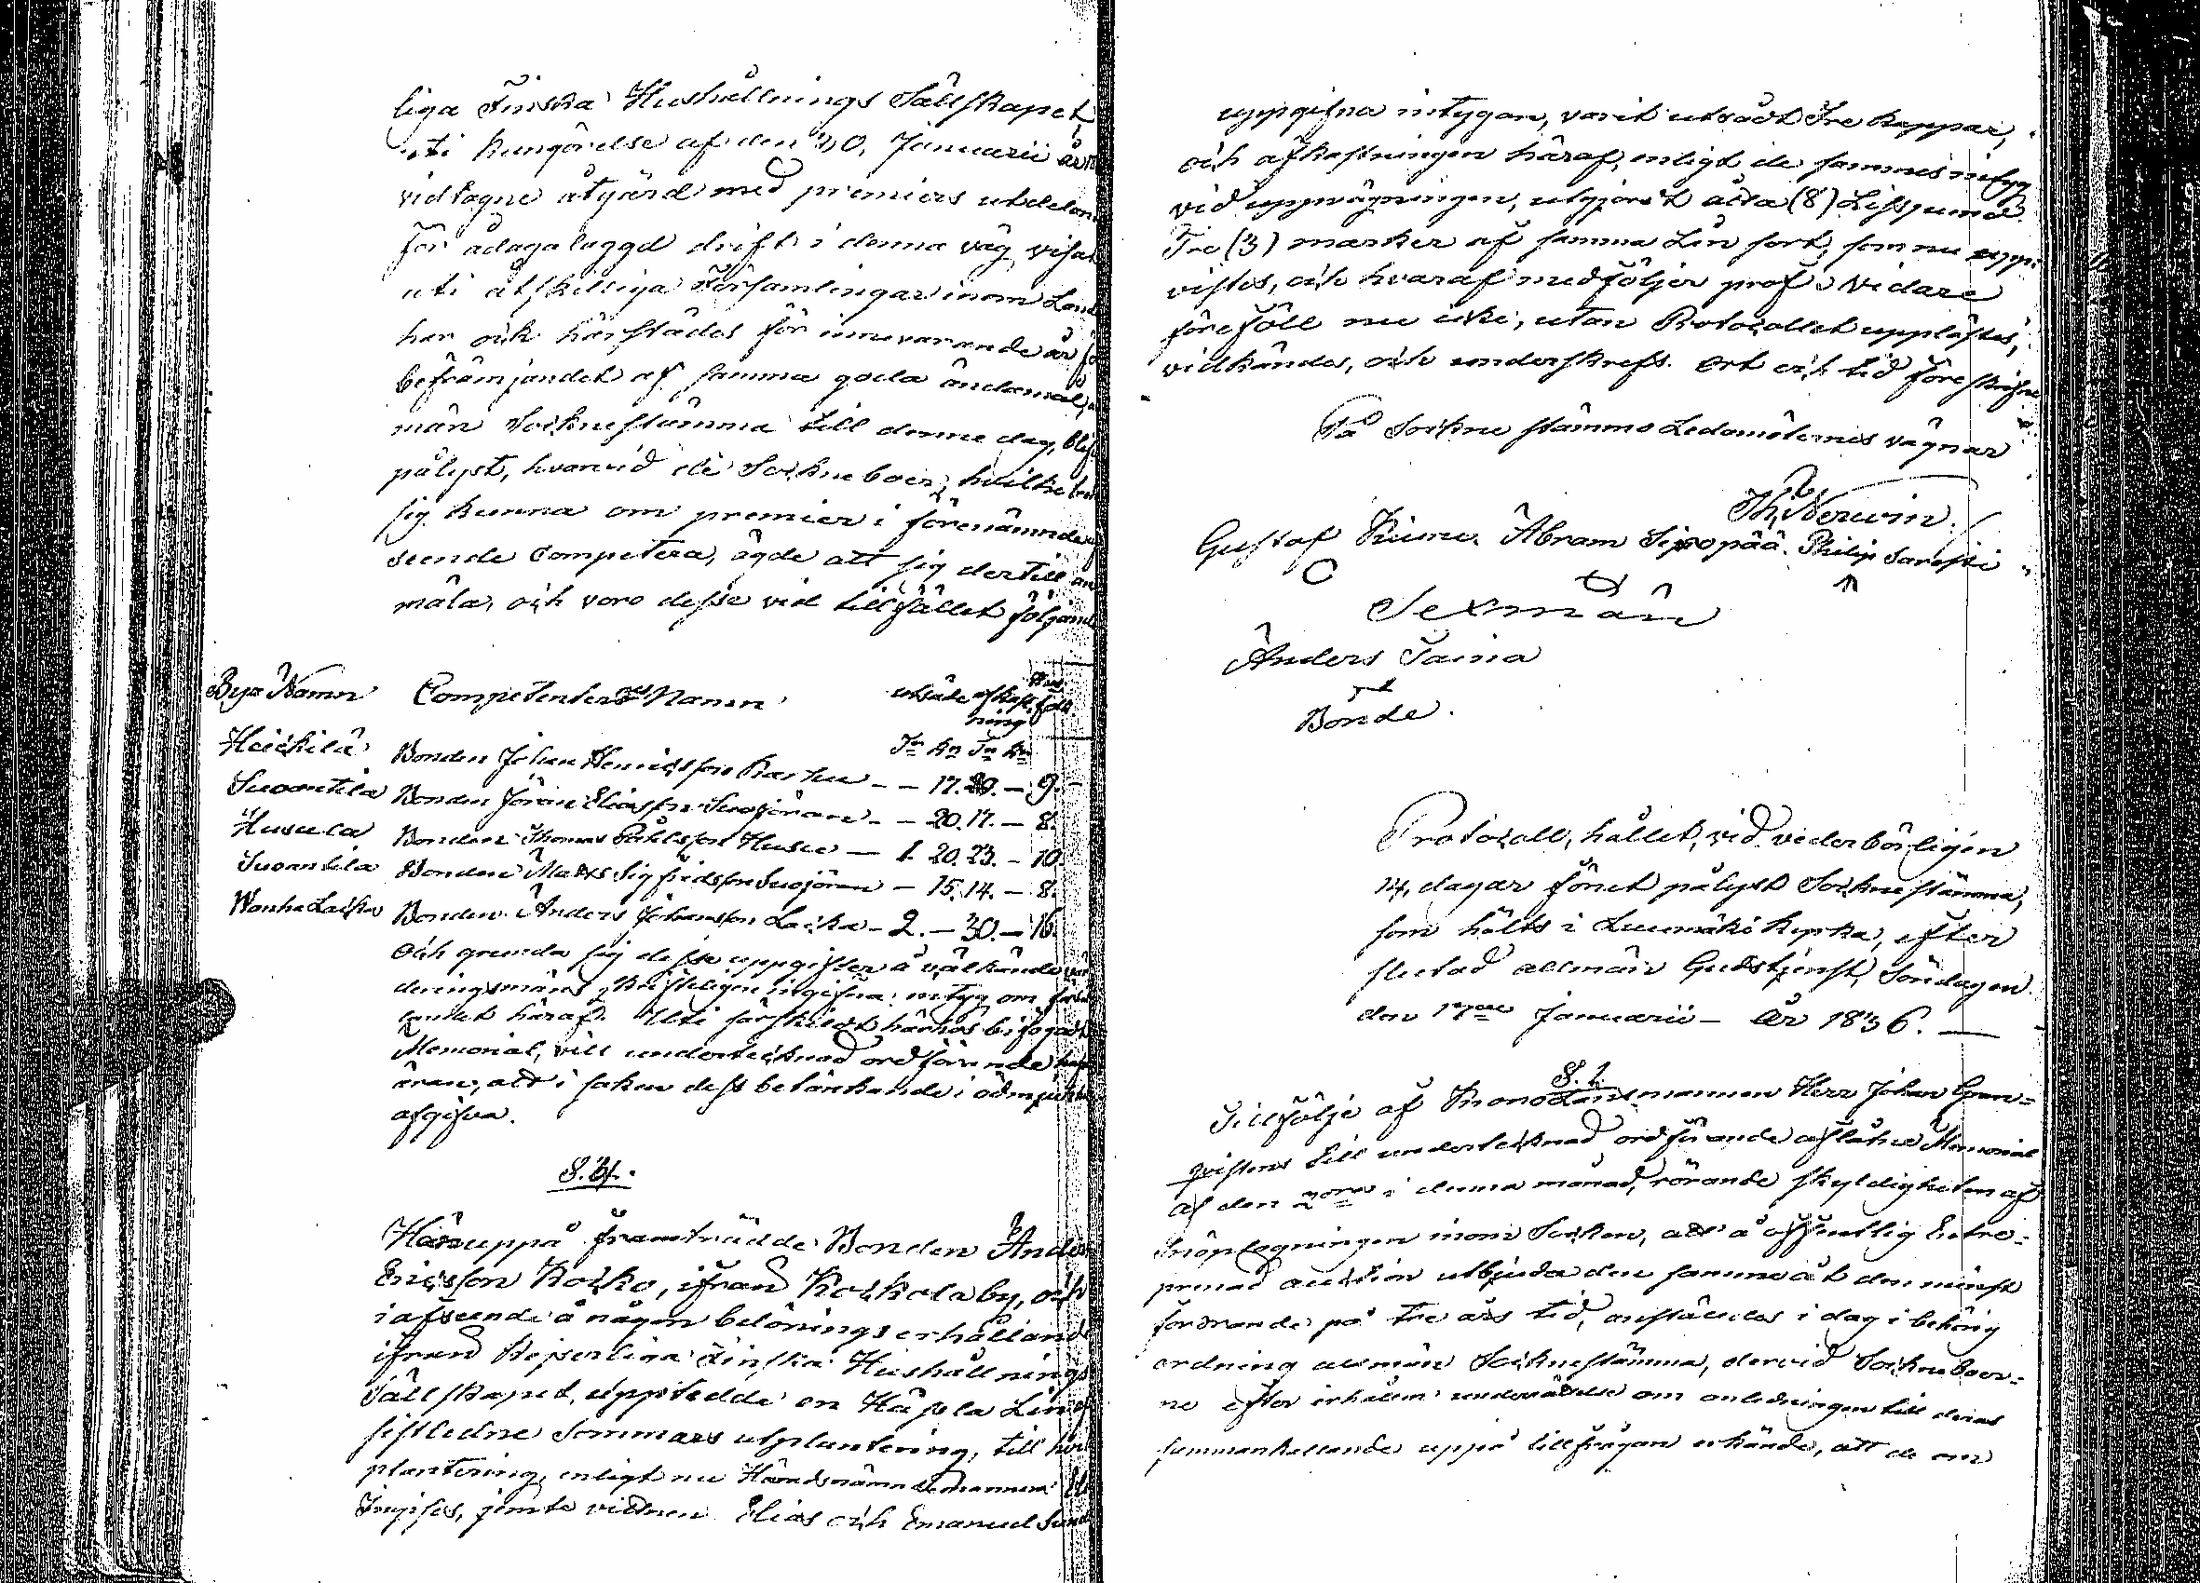 liga Finska Hushållnings Sällskapet,
uti kungörelse af den 30, Januarii
vidtagne åtgärd med premiers utdelan
för ådagalaggd drift i denna väg visat
uti åtskilliga Församlingar inom Land
her och härstädes för innevarande år
befrämjandet af samma goda ändamål,
män Sockne stämma till denne dag, blef
pålyst, hvarvid de Sockneboer, hvilke
sig kunna om premier i förenämnde
seende Competera, ägde att sig dertill an
mäla, och voro desse vid tillfället följand
Bya Namn Competenters Namn utsäde afkast
ning
Tn kr Tn kr
Heickilä Bonden Johan Henricsson Karhu - - 17. 20. - 9. -
Suoantila Bonden Jöran Eliasson Suojören - - 20. 17. - 8.
Husula Bonden Thomas Påhlsson Husu - 1. 20. 23. - 10.
Suoantila Bonden Mats Sigfridsson Suojören - 15. 14. - 8.
Wanha Lacka Bonden Anders Johansson Lacka - 2. - 30. - 16.
Och grunda sig desse uppgifter å välkände
deringsmäns skrifteligen ingifna intyg om
andet häraf. Uti särskildt härhos bifogadt
Memorial, vill undertecknad ordförande
äran, att i saken dess betänkande i ödmjukhet
afgifva.
§. 3.
Häruppå framträdde Bonden Ander
Ericsson Kosko, ifrån Koskola by, och
i afseende å någon belönings erhålland
ifrån Kejserliga Finska Hushållnings
Sällskapet, uppstedde en Häspla Lin
sistledne Sommars utplantering, till
plantering, enligt nu Häradsnämndemannen
jemte vittnen Elias och Emanuel
uppgifna intygan, varit utsådt Tre kappar,
och afkastningen häraf, enligt de sammes intyg
vid uppvägningen, utgjort åtta (8) Lispund
Tre (3) marker af samma Lin sort, som nu upp
vistes, och hvaraf medföljer prof. Vidare
föreföll nu icke, utan Protocollet upplästes,
vidkändes, och underskrefs. Ort och tid föreskrifne
På Sockne stämmo Ledamöternes vägnar
Th, Nerwin.
Gustaf Kiuru. Abram Sipopää. Philip
Sexmän
Anders Taina
Bonde.
Protocoll, hållet, vid vederbörligen
14, dagar förut pålyst Sockne stämma,
som hölts i Luumäki Kyrka, efter
slutad allmän Gudstjenst, Söndagen
den 17de Januarii - År 1836. -
§. 1.
Tillfölje af Kronolänsmannen Herr Johan Gran=
qvistens till undertecknad ordförande aflåtne Memorial
af den 2dra i denna månad, rörande skyldigheten af
Snöplogningen inom Socken, att å offentlig Entre=
prenad auction utbjuda den samme åt den minst
fordrande på tre års tid, anställdes i dag i behörig
ordning allmän Socknestämma, dervid Socknebоer=
ne efter erhållen underrättelse om anledningen till deras
sammankallande uppå tillfrågan erkände, att de om